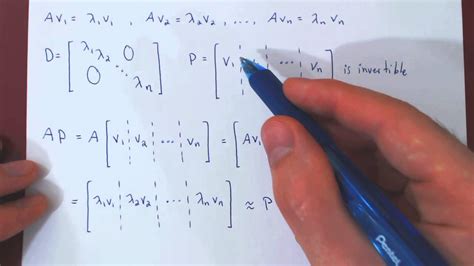 Av₁ = λ₁v₁ , Av₂ = λ₂v₂ , ... , Avₙ = λₙvₙ
D = [ λ₁ λ₂ ⋱ λₙ 0 0 ] P = [ v₁ ¦ ¦ ⋯ ¦ vₙ ] is invertible
AP = A [ v₁ ¦ v₂ ¦ ⋯ ¦ vₙ ] = [ Av₁
= [ λ₁v₁ ¦ λ₂v₂ ¦ ⋯ ¦ λₙvₙ ] ≈ P
Pentel